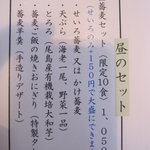 昼のセット
蕎麦セット(限定10食)1,050
(せいろのみ+150円で大盛にできま
・せいろ蕎麦 又は かけ蕎麦
・天ぷら(海老一尾、野菜一品)
・とろろ(尾島産有機栽培大和芋)
・蕎麦ご飯の焼きおにぎり(特製タ
・蕎麦羊羹(手造りデザート)